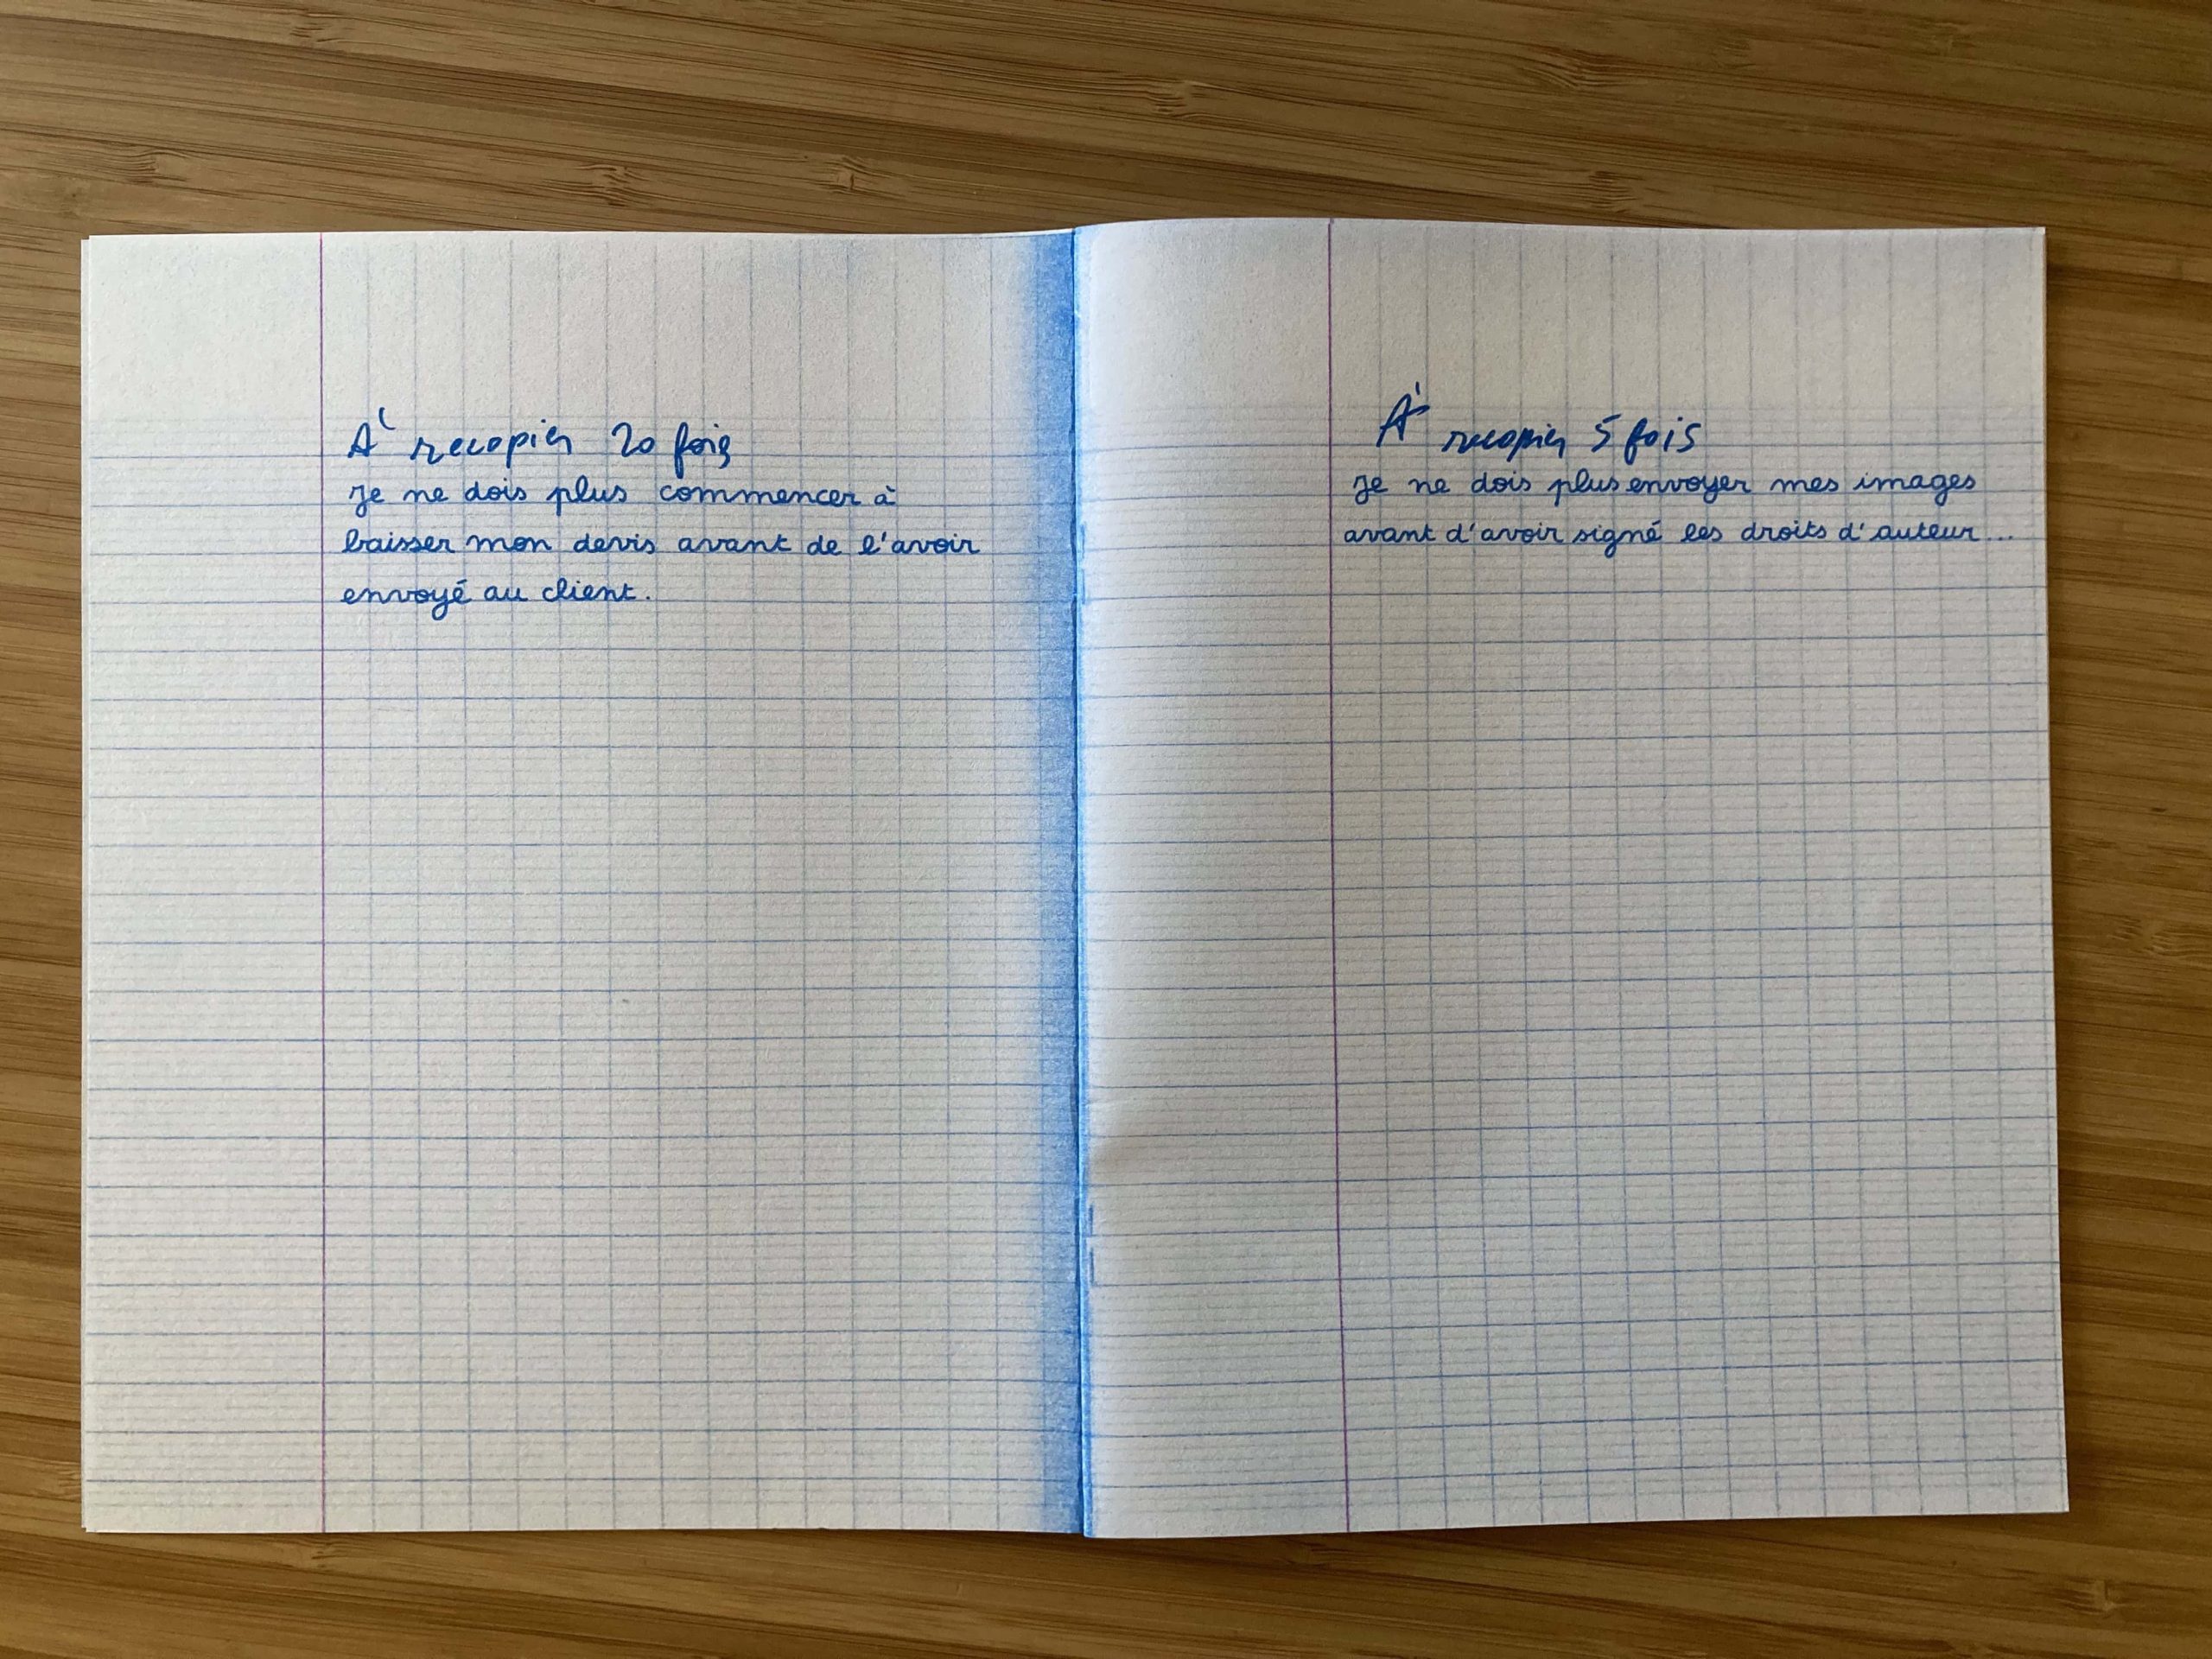 À recopier 20 fois
Je ne dois plus commencer à
baisser mon devis avant de l'avoir
envoyé au client.
À recopier 5 fois
Je ne dois plus envoyer mes images
avant d'avoir signé les droits d'auteur...